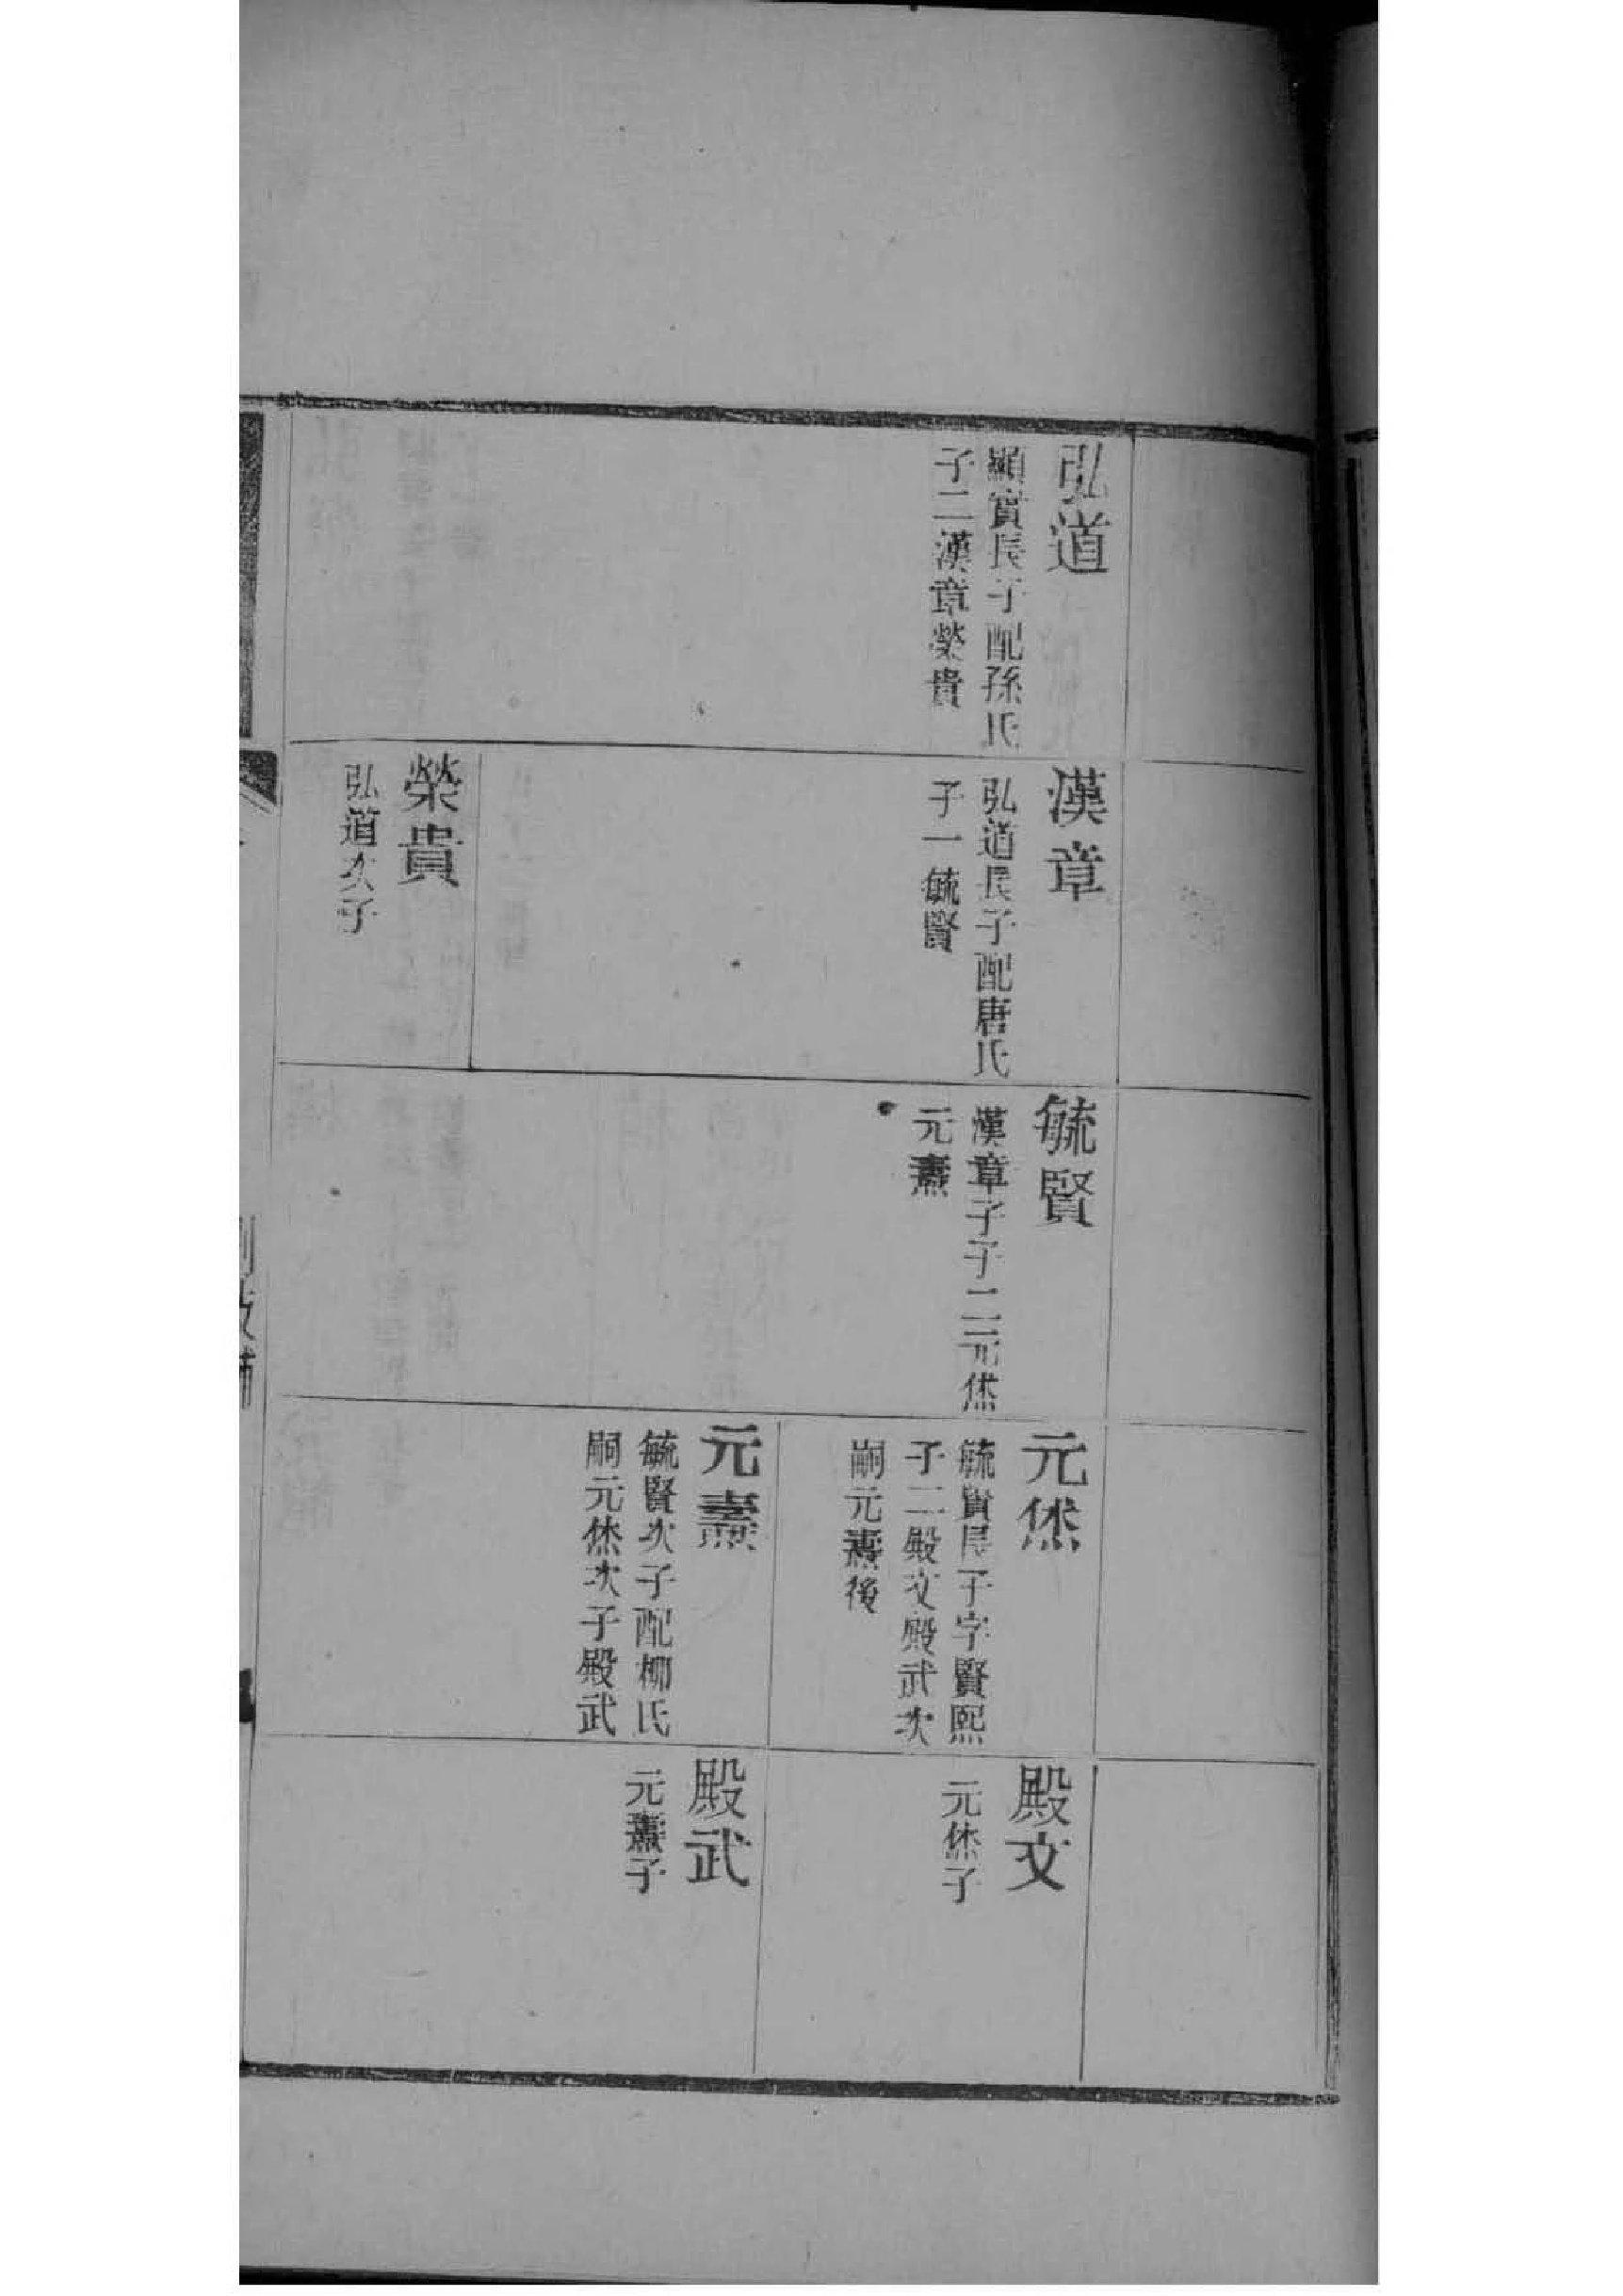 弘道
顯賓長子配孫氏
子二漢章榮貴
漢章
弘道長子配唐氏
子一毓賢
榮貴
弘道次子
毓賢
漢章子子二元烋
元燾
元烋
毓賢長子字賢熙
子二殿文殿武次
嗣元燾後
元燾
毓賢次子配柳氏
嗣元烋次子殿武
殿文
元烋子
殿武
元燾子